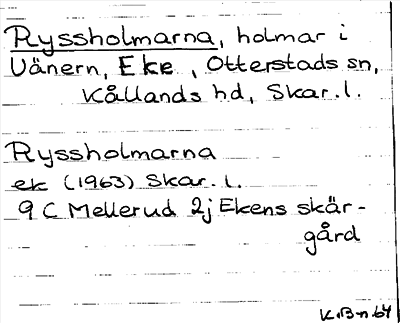 Ryssholmarna, holmar i
Vänern, Eke, Otterstads sn,
Kållands hd, Skar. l.
Ryssholmarna
ek (1963) Skar. l.
9 C Mellerud 2j Ekens skär-
gård
K.B-n 64